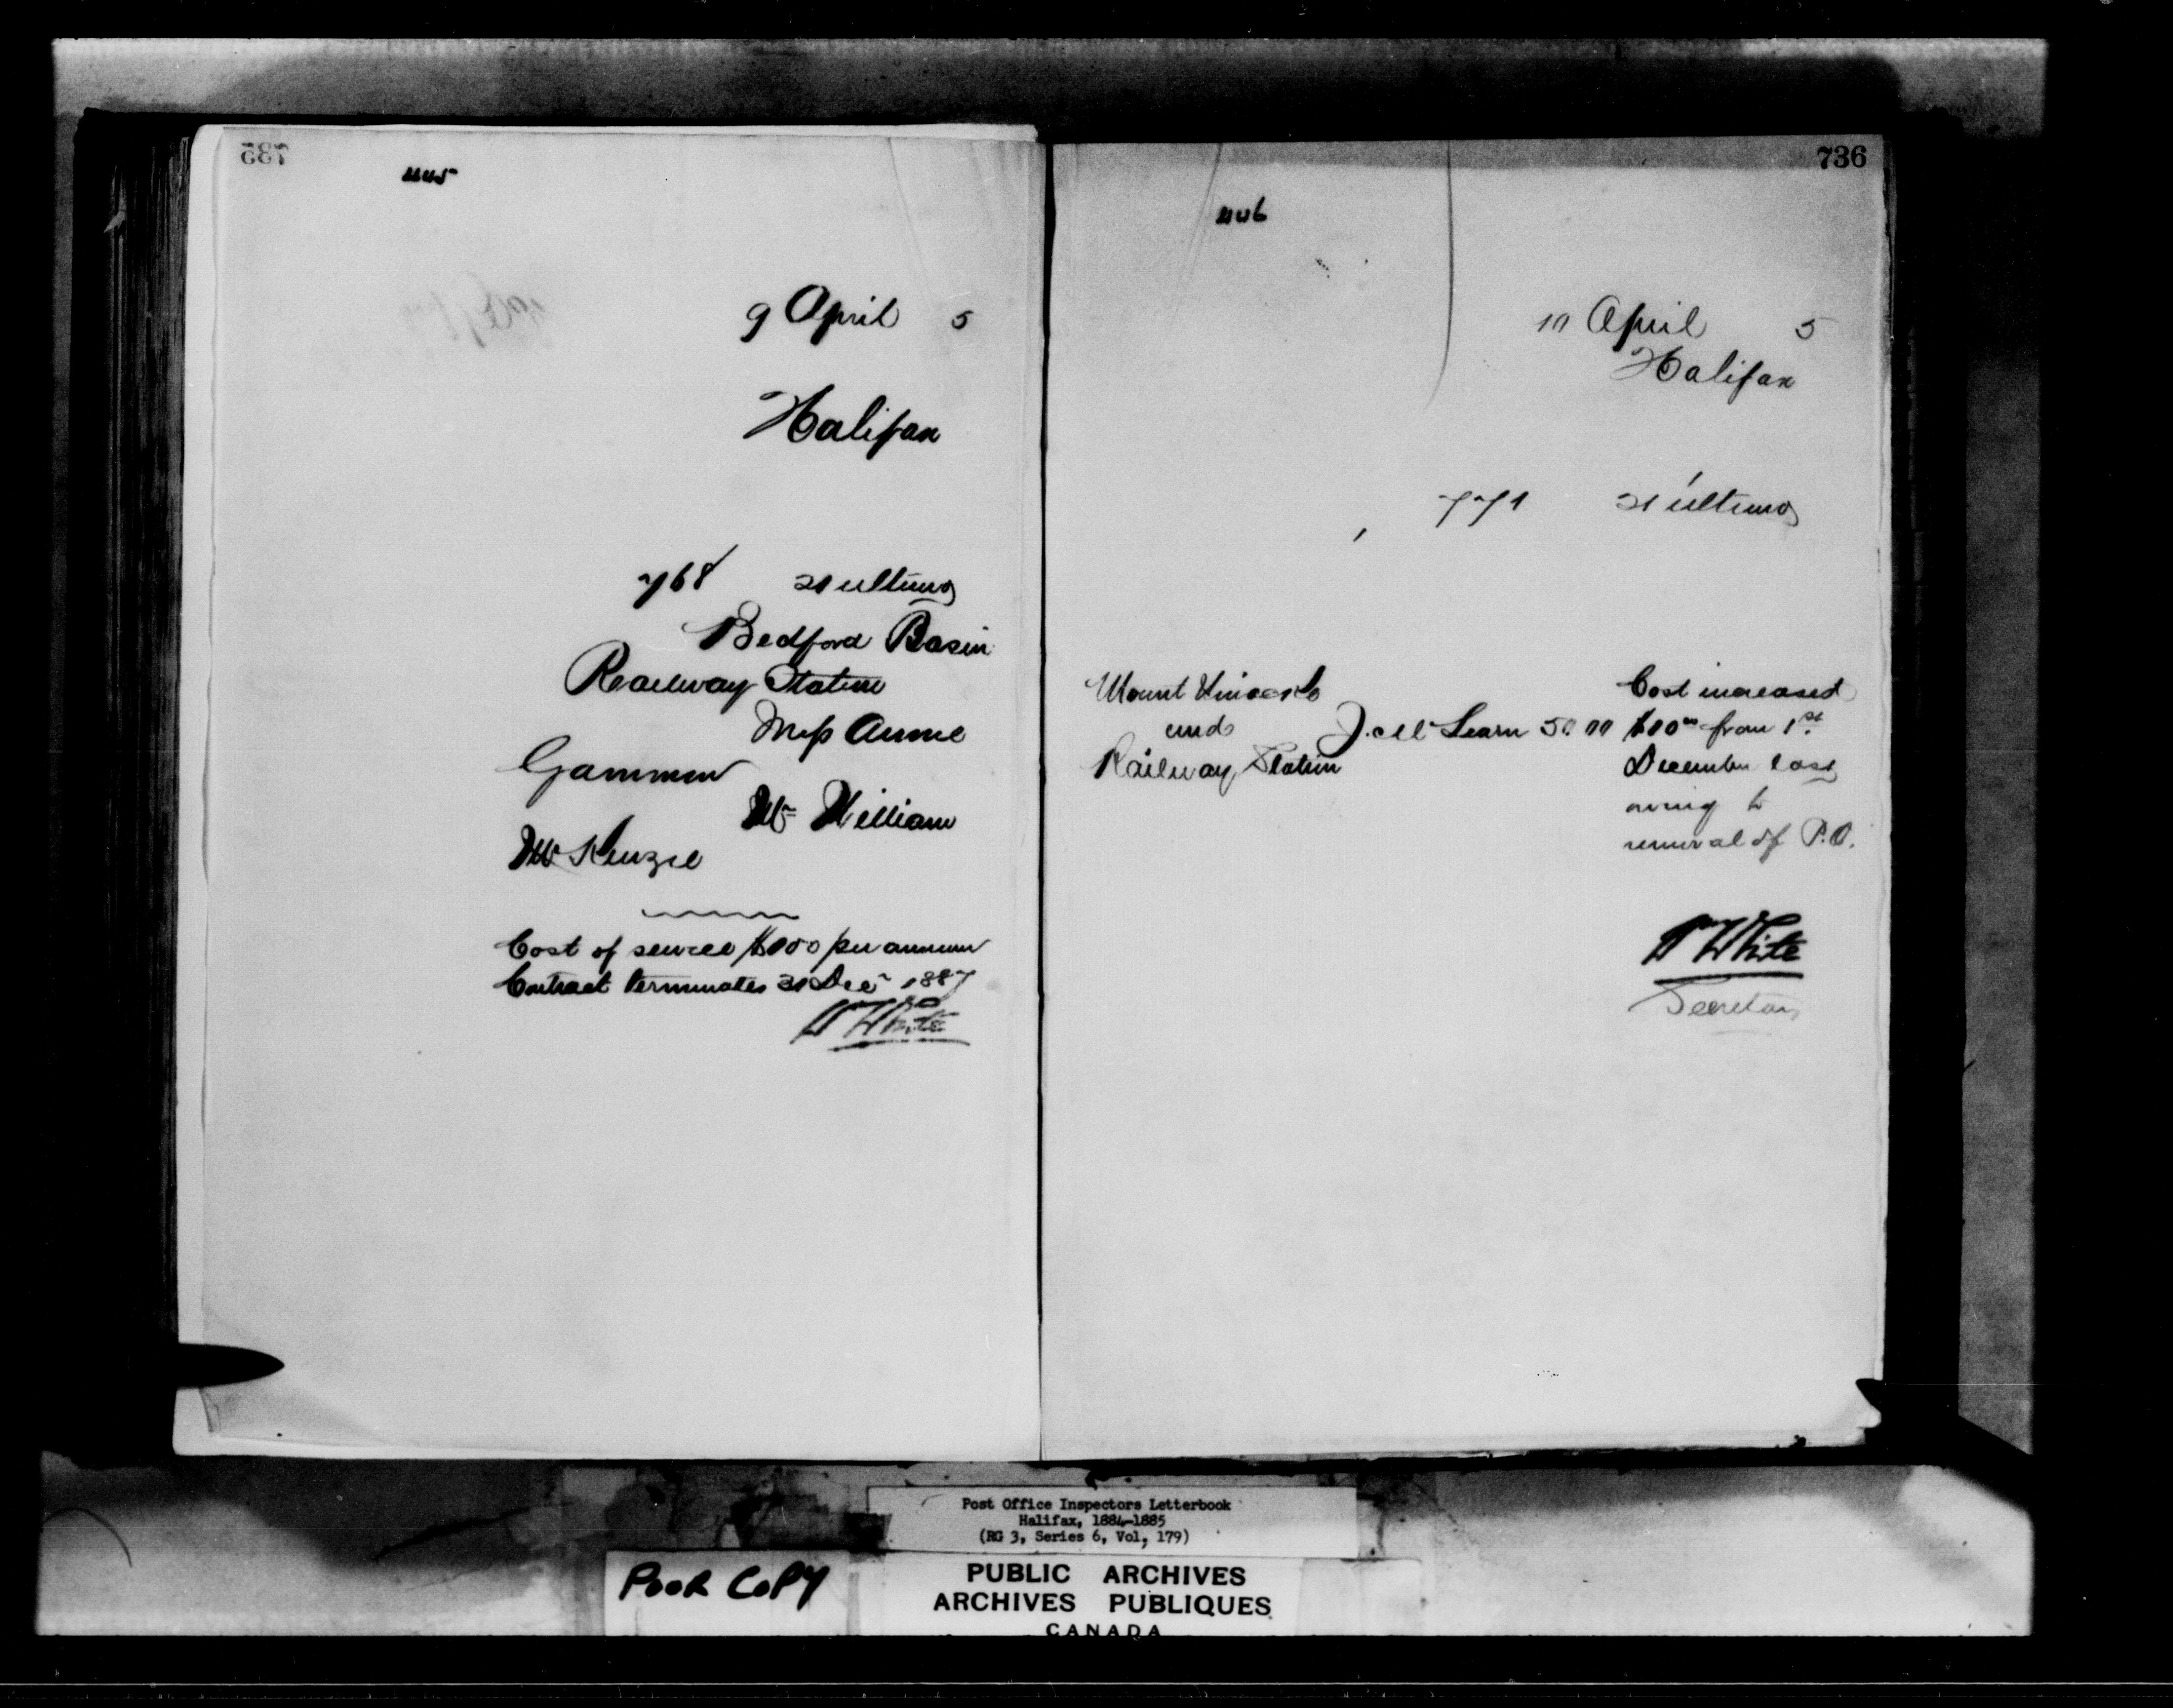 735
445
9 April 5
Halifax
768 21 ultimo
Bedford Basin
Railway Station
Miss Annie
Gammon
Mr William
McKenzie
Cost of service $100 per annum
Contract terminates 31 Dec 1887
W White
736
446
10 April 5
Halifax
771 21 ultimo
Mount
and
Railway Station
J. McLearn 50.00
Cost increased
$10 00 from 1st
December last
owing to
removal of P.O.
W White
Secretary
Post Office Inspectors Letterbook
Halifax, 1884-1885
(RG 3, Series 6, Vol, 179)
POOR COPY
PUBLIC ARCHIVES
ARCHIVES PUBLIQUES
CANADA